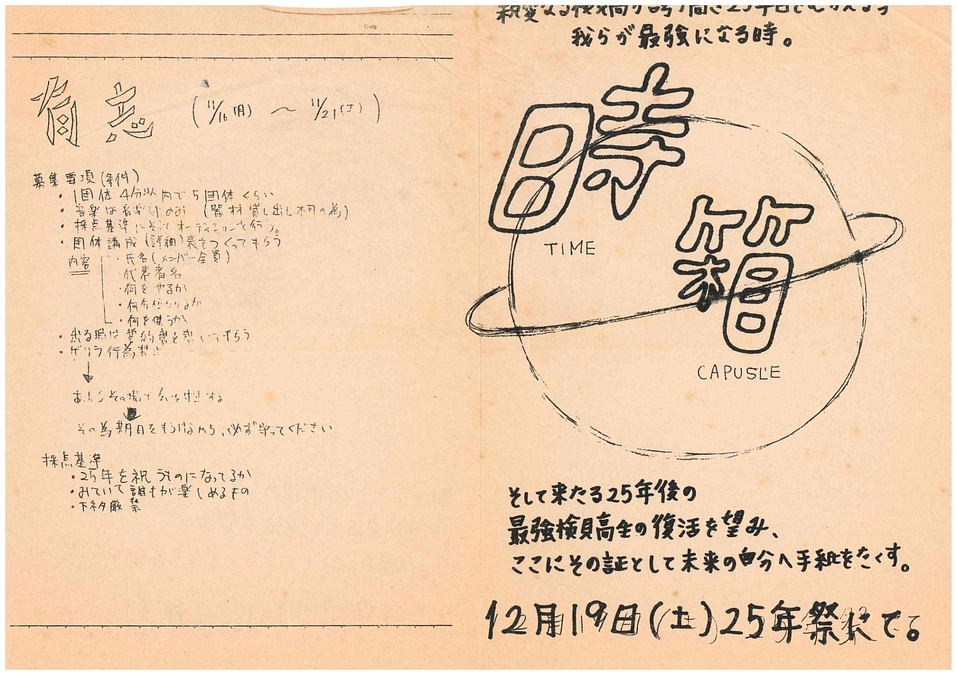 有志 (11/16(月) ～ 11/21(土))
募集要項(条件)
・1団体 4分以内で 5団体くらい
・音楽は音楽 のみ (器材貸し出し不可の為)
・採点基準にそってオーディションを行う。
・団体講成(詳細)表をつくってもらう
内容
・氏名(メンバー全員)
・代表者名
・何をやるか
・何分位になるか
・何を使うか
・出る時は誓約書を書いてもらう
・ゲリラ行為禁止
↓
その場で
↓
その為期日をもうけるから、必ず守ってください
採点基準
・25年を祝うものになってるか
・みていて誰もが楽しめるもの
・下ネタ厳禁
Date
我らが最強になる時。
時
TIME
箱
CAPUSLE
そして来たる25年後の
最強検見高生の復活を望み、
ここにその証として未来の自分へ手紙をたくす。
12月19日(土)25年祭にて。